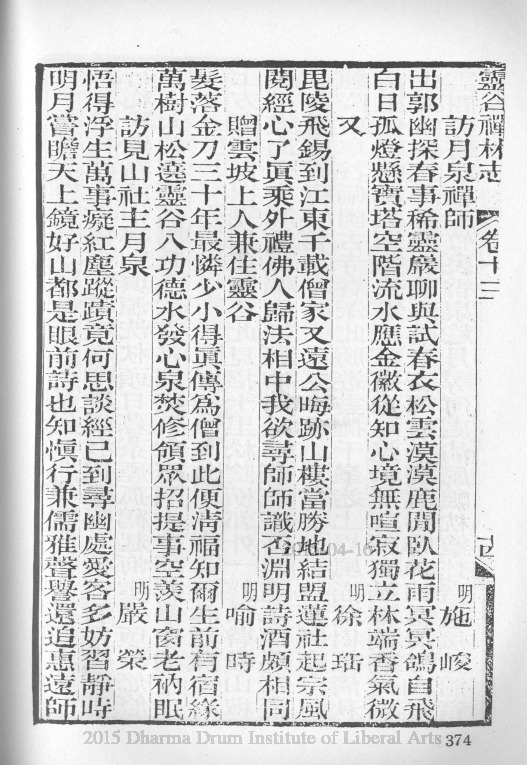 靈谷禪林志 卷十三
訪月泉禪師 明 施峻
出郭幽探春事稀靈巖聊與試春衣松雲漠漠鹿閒臥花雨冥冥鴿自飛
白日孤燈懸寶塔空階流水應金徽從知心境無喧寂獨立林端香氣微
又 明 徐
毘陵飛錫到江東千載僧家又遠公晦跡山樓當勝地結盟蓮社起宗風
閱經心了眞乘外禮佛人歸法相中我欲尋師師識否淵明詩酒頗相同
贈雲坡上人兼住靈谷 明 喻時
髮落金刀三十年最憐少小得眞傳為僧到此便淸福知爾生前有宿緣
萬樹山松遶靈谷八功德水發心泉焚修領眾招提事空羨山窗老衲眠
訪見山社主月泉 明 嚴榮
悟得浮生萬事癡紅塵蹤蹟竟何思談經已到尋幽處愛客多妨習靜時
明月嘗瞻天上鏡好山都是眼前詩也知愼行兼儒雅聲譽還追惠遠師
2015 Dharma Drum Institute of Liberal Arts 374